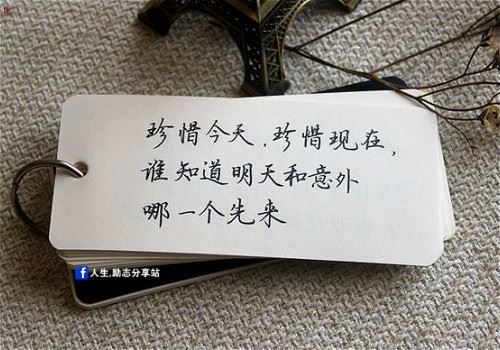 珍惜今天,珍惜现在,
谁知道明天和意外
哪一个先来
人生,励志分享站